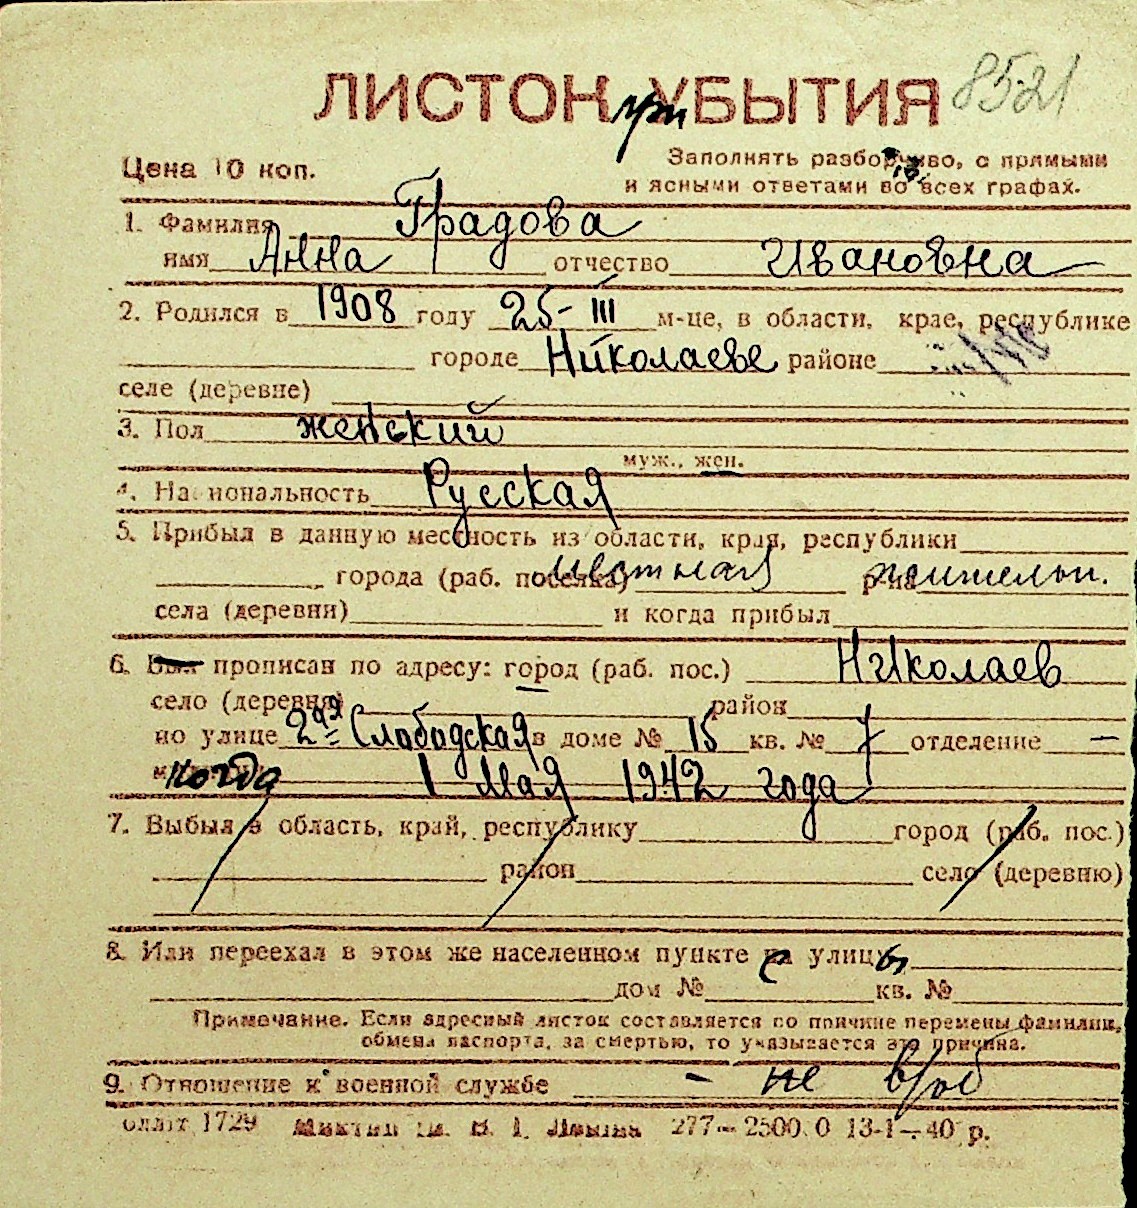 ЛИСТОК при УБЫТИЯ 8521
Цена 10 коп. Заполнять разборчиво, с прямыми
и ясными ответами во всех графах.
1. Фамилия Градова
имя Анна отчество Ивановна
2. Родился в 1908 году 25-III м-це, в области, крае, республике
городе Николаеве районе
селе (деревне)
3. Пол женский
муж., жен.
4. Национальность Русская
5. Прибыл в данную местность из области, края, республики
города (раб. поселка) местная р-на жительн.
села (деревни) и когда прибыл
6. Был прописан по адресу: город (раб. пос.) Николаев
село (деревня) район
по улице 2ая Слободская в доме № 15 кв. № 7 отделение —
когда 1 Мая 1942 года
7. Выбыл в область, край, республику город (раб. пос.)
район село (деревню)
8. Или переехал в этом же населенном пункте с улицы
дом № кв. №
Примечание. Если адресный листок составляется по причине перемены фамилии,
обмена паспорта, за смертью, то указывается эта причина.
9. Отношение к военной службе — не в/об
1729 277—2500.0 13-1—40 р.